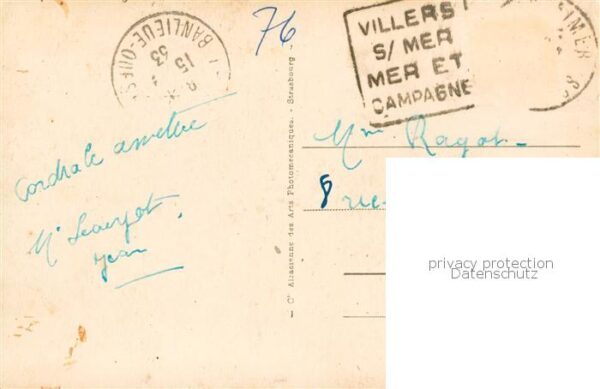 76
BANLIEUE-OUES
15
33
VILLERS
S/ MER
MER ET
CAMPAGNE
S/MER
Cordiale
Mme Ragot
8 rue
Jean
Cie Alsacienne des Arts Photomécaniques. - Strasbourg
privacy protection
Datenschutz